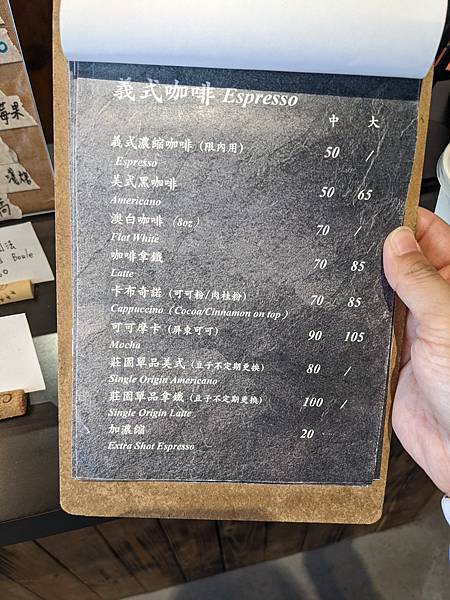 義式咖啡 Espresso
中 大
義式濃縮咖啡 (限內用) 50 /
Espresso
美式黑咖啡 50 65
Americano
澳白咖啡 (8oz) 70 /
Flat White
咖啡拿鐵 70 85
Latte
卡布奇諾 (可可粉/肉桂粉) 70 85
Cappuccino (Cocoa/Cinnamon on top)
可可摩卡 (屏東可可) 90 105
Mocha
莊園單品美式 (豆子不定期更換) 80 /
Single Origin Americano
莊園單品拿鐵 (豆子不定期更換) 100 /
Single Origin Latte
加濃縮 20
Extra Shot Espresso
Boule